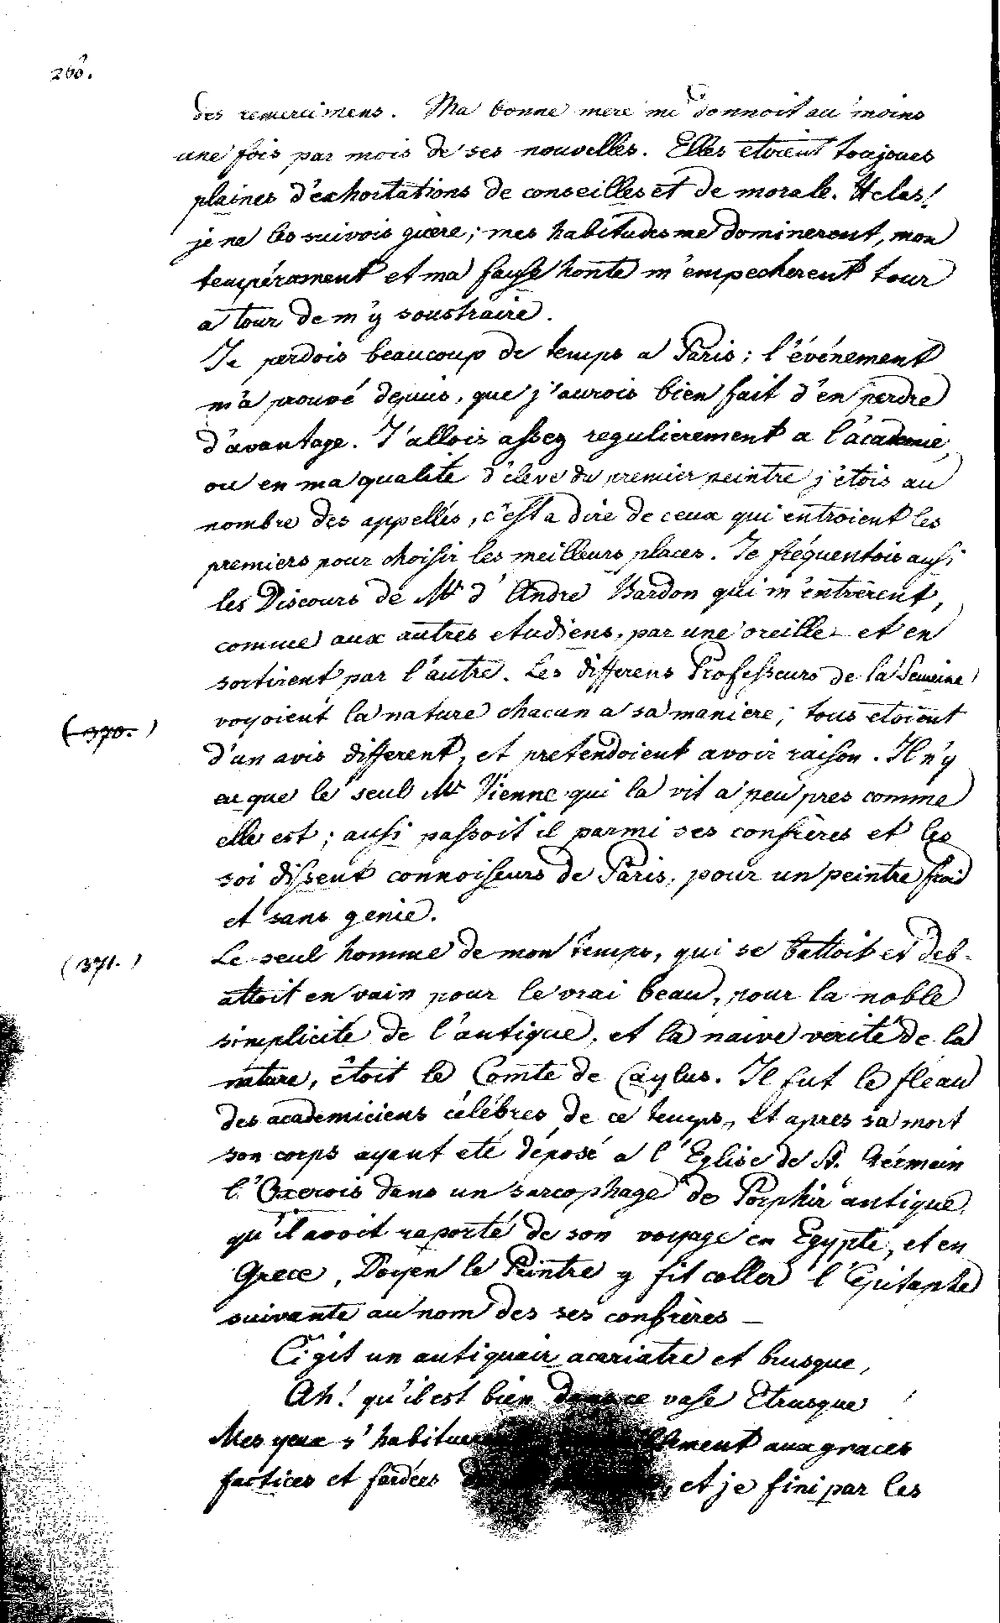 260.
des remercimens. Ma bonne mere me donnoit au moins
une fois par mois de ses nouvelles. Elles etoient toujours
plaines d'exhortations de conseilles et de morale. Helas!
je ne les suivois guère; mes habitudes me dominerent, mon
tempérament et ma fausse honte m'empecherent tour
a tour de m'y soustraire.
Je perdois beaucoup de temps a Paris; l'événement
m'a prouvé depuis, que j'aurois bien fait d'en perdre
d'avantage. J'allois assez regulierement a l'académie,
ou en ma qualité d'éleve du premier peintre j'étois au
nombre des appellés, c'est a dire de ceux qui entroient les
premiers pour choisir les meilleurs places. Je fréquentois aussi
les Discours de Mr d'André Bardon qui m'entrèrent,
comme aux autres etudiens, par une oreille et en
sortirent par l'autre. Les differens Professeurs de la Semeine
(370.)
voyoient la nature chacun a sa maniere; tous etoient
d'un avis different, et pretendoient avoir raison. Il n'y
eu que le seul Mr Vienne qui la vit a peu pres comme
elle est; aussi passoit il parmi ses confrères et les
soi dissent connoisseurs de Paris, pour un peintre froid
et sans genie.
(371.)
Le seul homme de mon temps, qui se battoit et deb-
attoit en vain pour le vrai beau, pour la noble
simplicité de l'antique, et la naive verité de la
nature, étoit le Comte de Caylus. Il fut le fleau
des academiciens célébres de ce temps, et apres sa mort
son corps ayent eté déposé a l'Eglise de St. Gérmain
l'Oxerois dans un sarcophage de Porphir antique,
qu'il avoit raporté de son voyage en Egypte, et en
Grece, Doyen le Peintre y fit coller l'Epitaphe
suivante au nom des ses confrères —
Ci git un antiquair acariatre et brusque,
Ah! qu'il est bien dans ce vase Etrusque
Mes yeux s'habituer aux graces
factices et fardées , et je fini par les